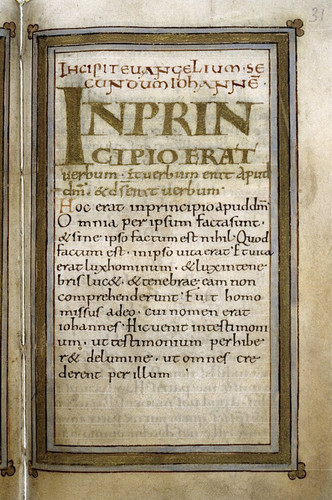 31
INCIPIT EUANGELIUM SE
CUNDUM IOHANNĒ.
IN PRIN
CIPIO ERAT
uerbum. Et uerbum erat apud
dm̄. & ds̄ erat uerbum
Hoc erat inprincipio apud dm̄
Omnia per ipsum facta sunt.
& sine ipso factum est nihil. Quod
factum est. inipso uita erat. Et uita
erat lux hominum. & lux intene
bris luc&. & tenebrae eam non
comprehenderunt. Fuit homo
missus adeo. cui nomen erat
iohannes. Hic uenit intestimoni
um. ut testimonium perhibe
r& delumine. ut omnes cre
derent per illum